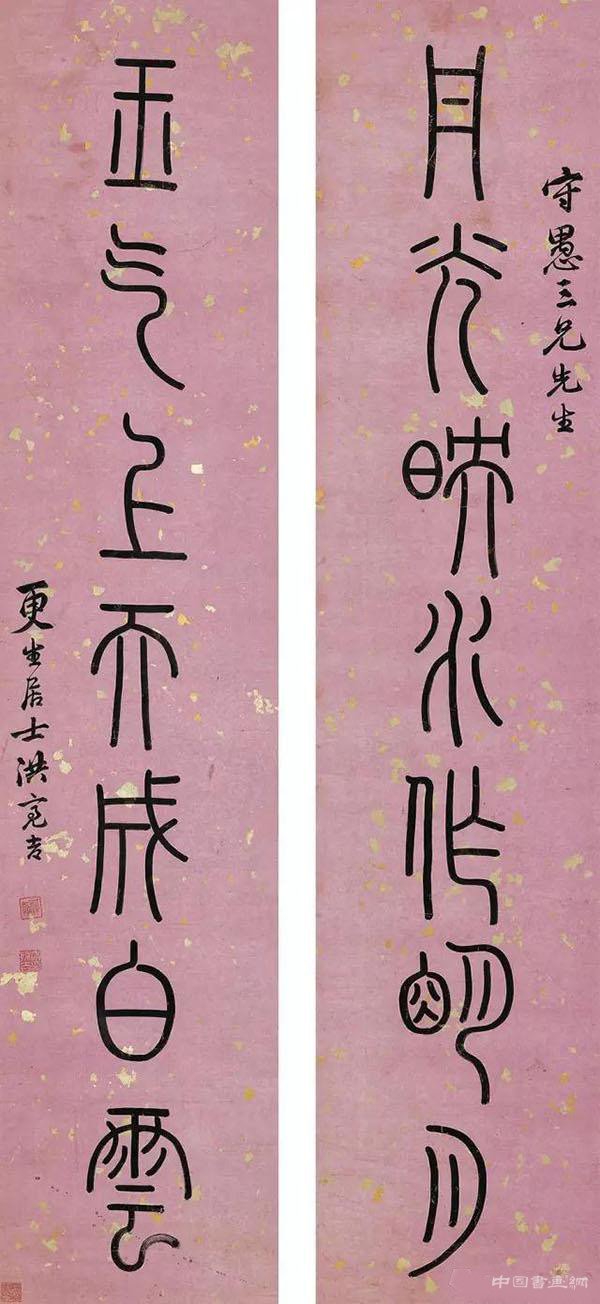 守愚三兄先生
丹光映水作明月
玉气上天成白雲
更生居士洪亮吉
中国書画網